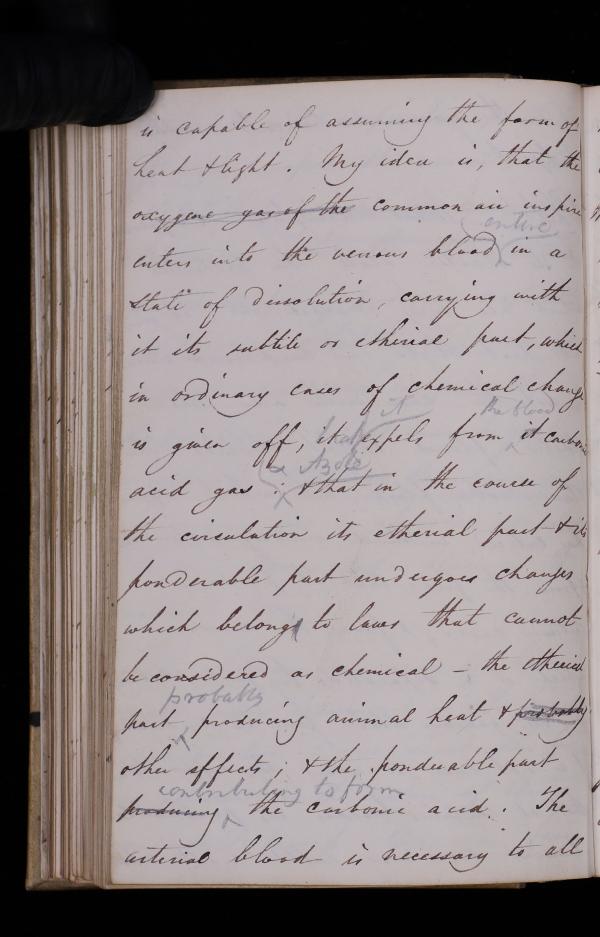 is capable of assuming the form of
heat & light. My idea is, that the
oxygene gas of the common air inspire
entire
enters into the venous blood in a
state of dissolution, carrying with
it its subtile or etherial part, which
in ordinary cases of chemical change
it the blood
is given off, it expels from it carbonic
& Azote
acid gas; & that in the course of
the circulation its etherial part & its
ponderable part undergoes changes
which belong to laws that cannot
be considered as chemical – the etherial
probably
part producing animal heat & probably
other effects; & the ponderable part
contributing to form
producing the carbonic acid. The
arterial blood is necessary to all